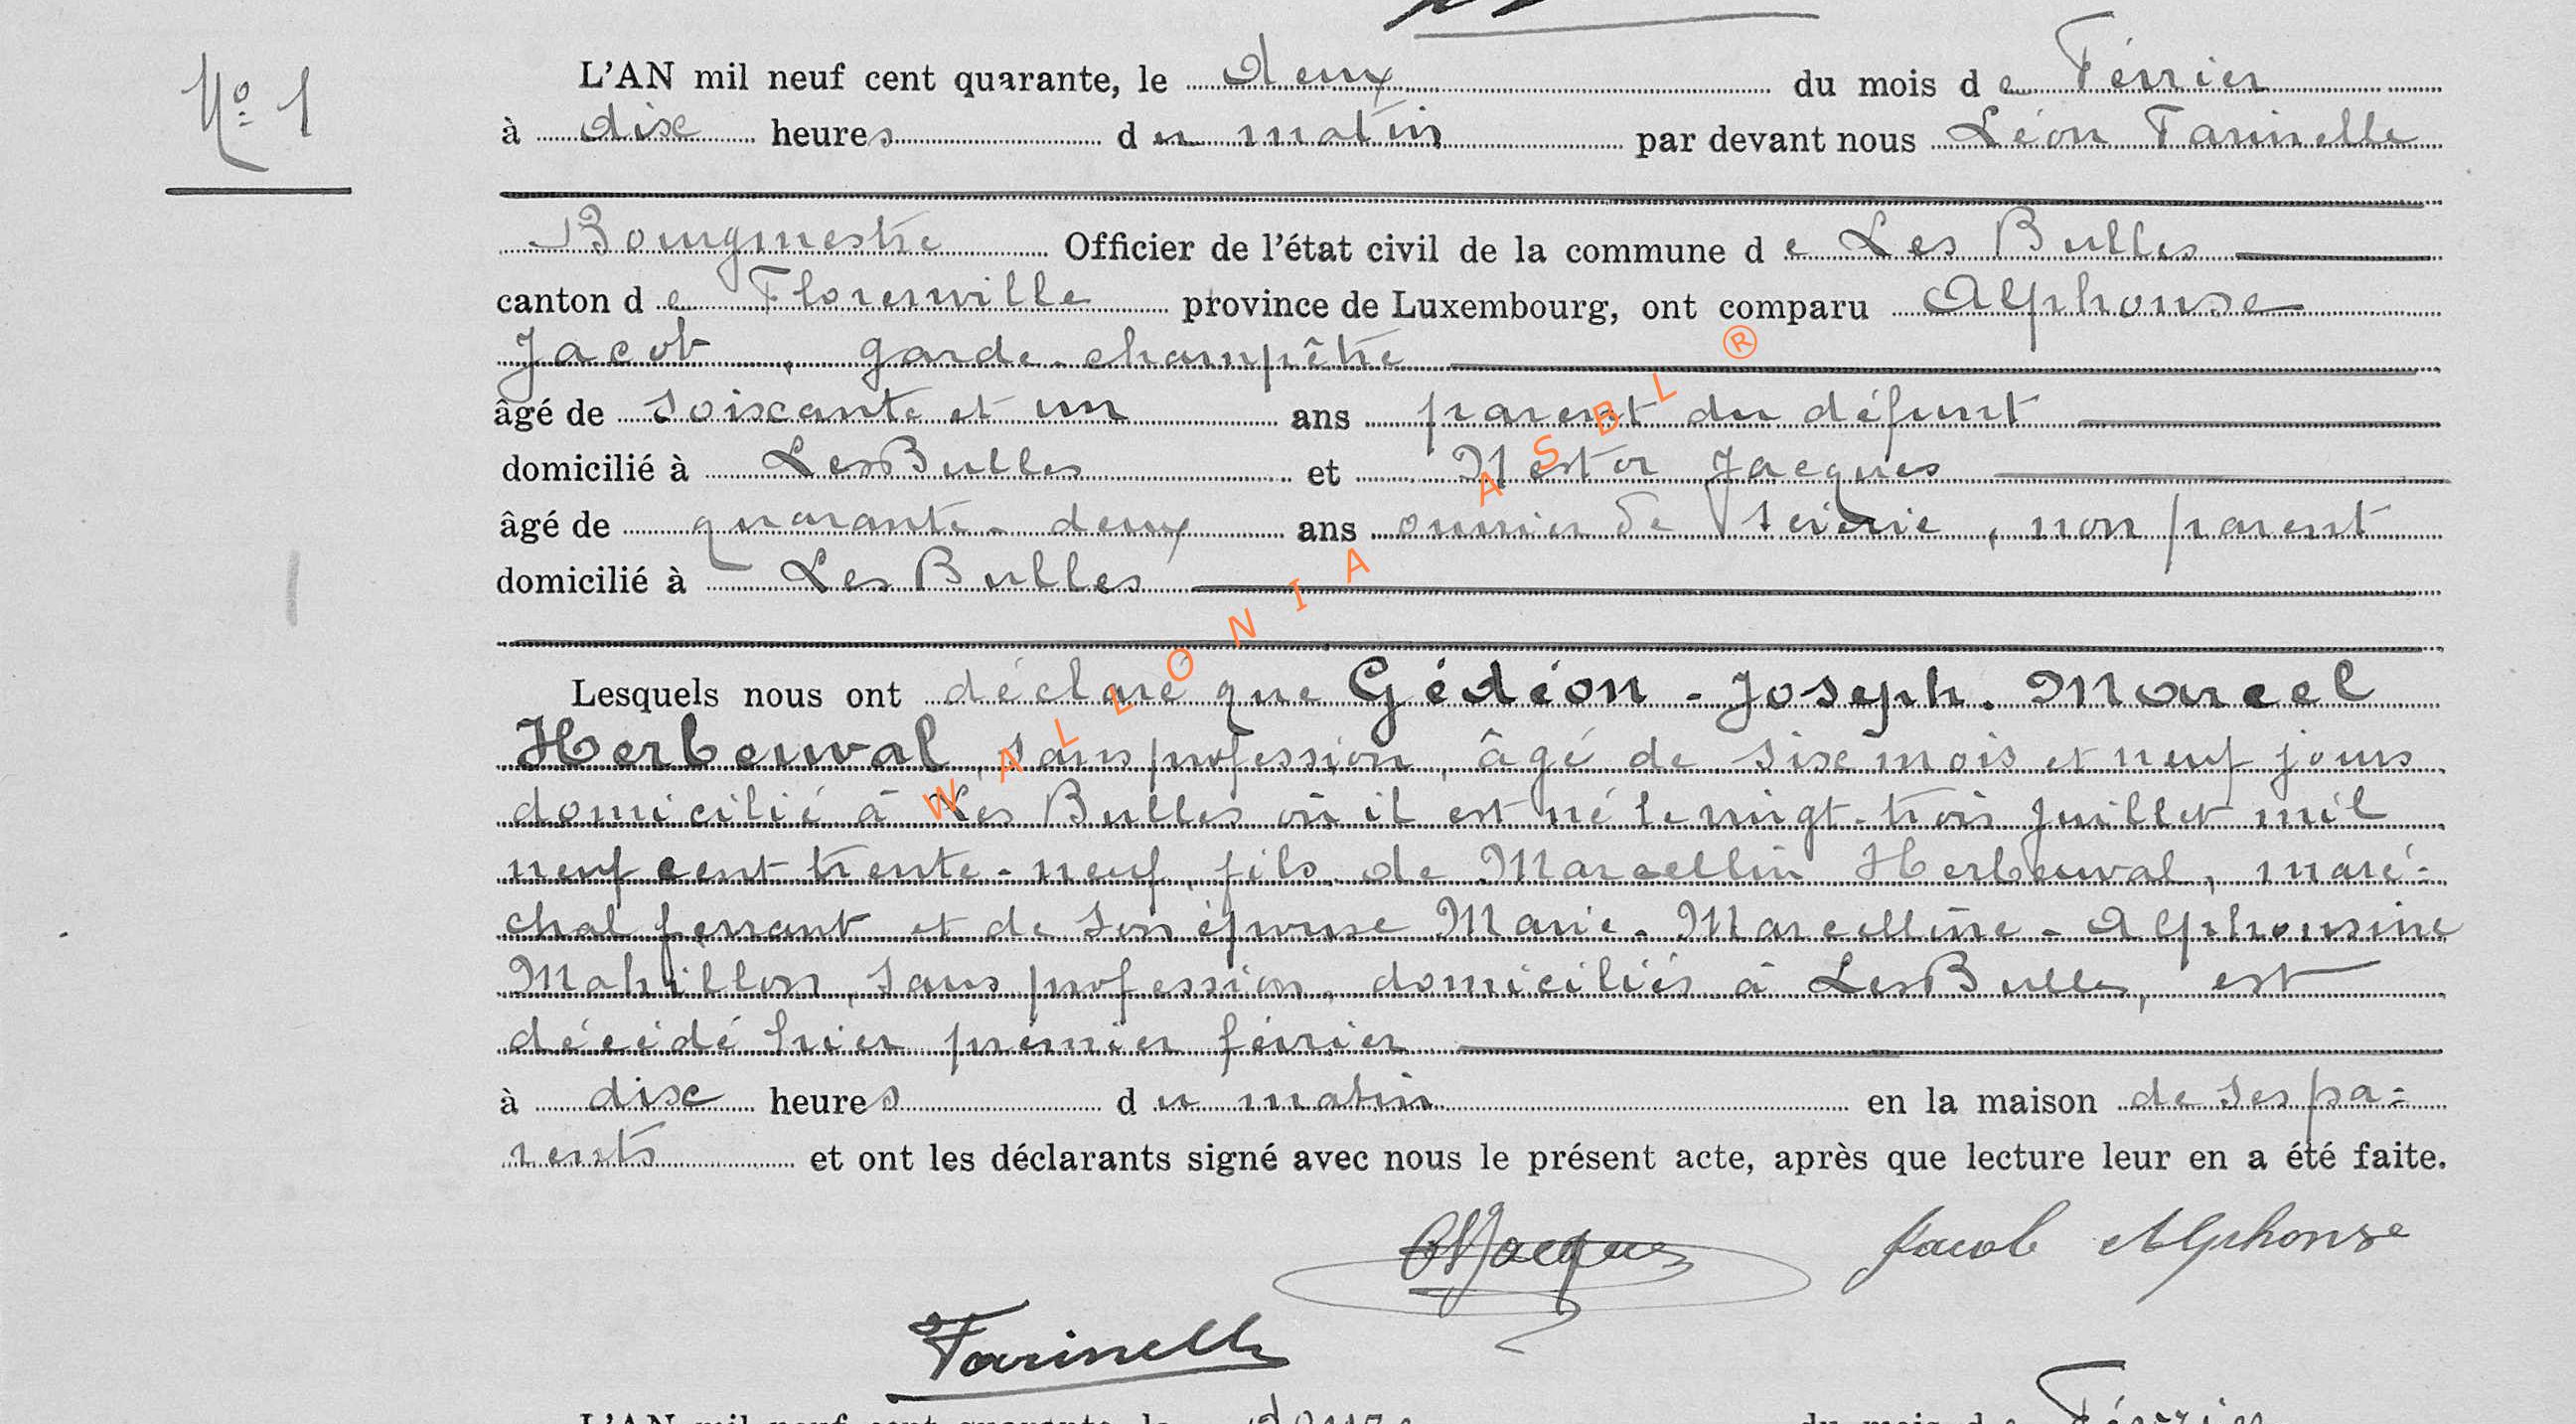 Nº 1
L'AN mil neuf cent quarante, le deux du mois de Février
à dix heures du matin par devant nous Léon Farinelle
Bourgmestre Officier de l'état civil de la commune de Les Bulles
canton de Florenville province de Luxembourg, ont comparu Alphonse
Jacob, garde-champêtre
âgé de soixante et un ans parent du défunt
domicilié à Les Bulles et Nestor Jacques
âgé de quarante-deux ans ouvrier de scierie, non parent
domicilié à Les Bulles
Lesquels nous ont déclaré que Gédéon-Joseph-Marcel
Herbeuval, sans profession, âgé de six mois et neuf jours
domicilié à Les Bulles où il est né le vingt-trois juillet mil
neuf cent trente-neuf, fils de Marcellin Herbeuval, maré-
chal ferrant et de son épouse Marie-Marcelline-Alphonsine
Mahillon, sans profession, domiciliés à Les Bulles, est
décédé hier premier février
à dix heures du matin en la maison de ses pa-
rents et ont les déclarants signé avec nous le présent acte, après que lecture leur en a été faite.
NJacques Jacob Alphonse
Farinelle
WALLONIA ASBL ®